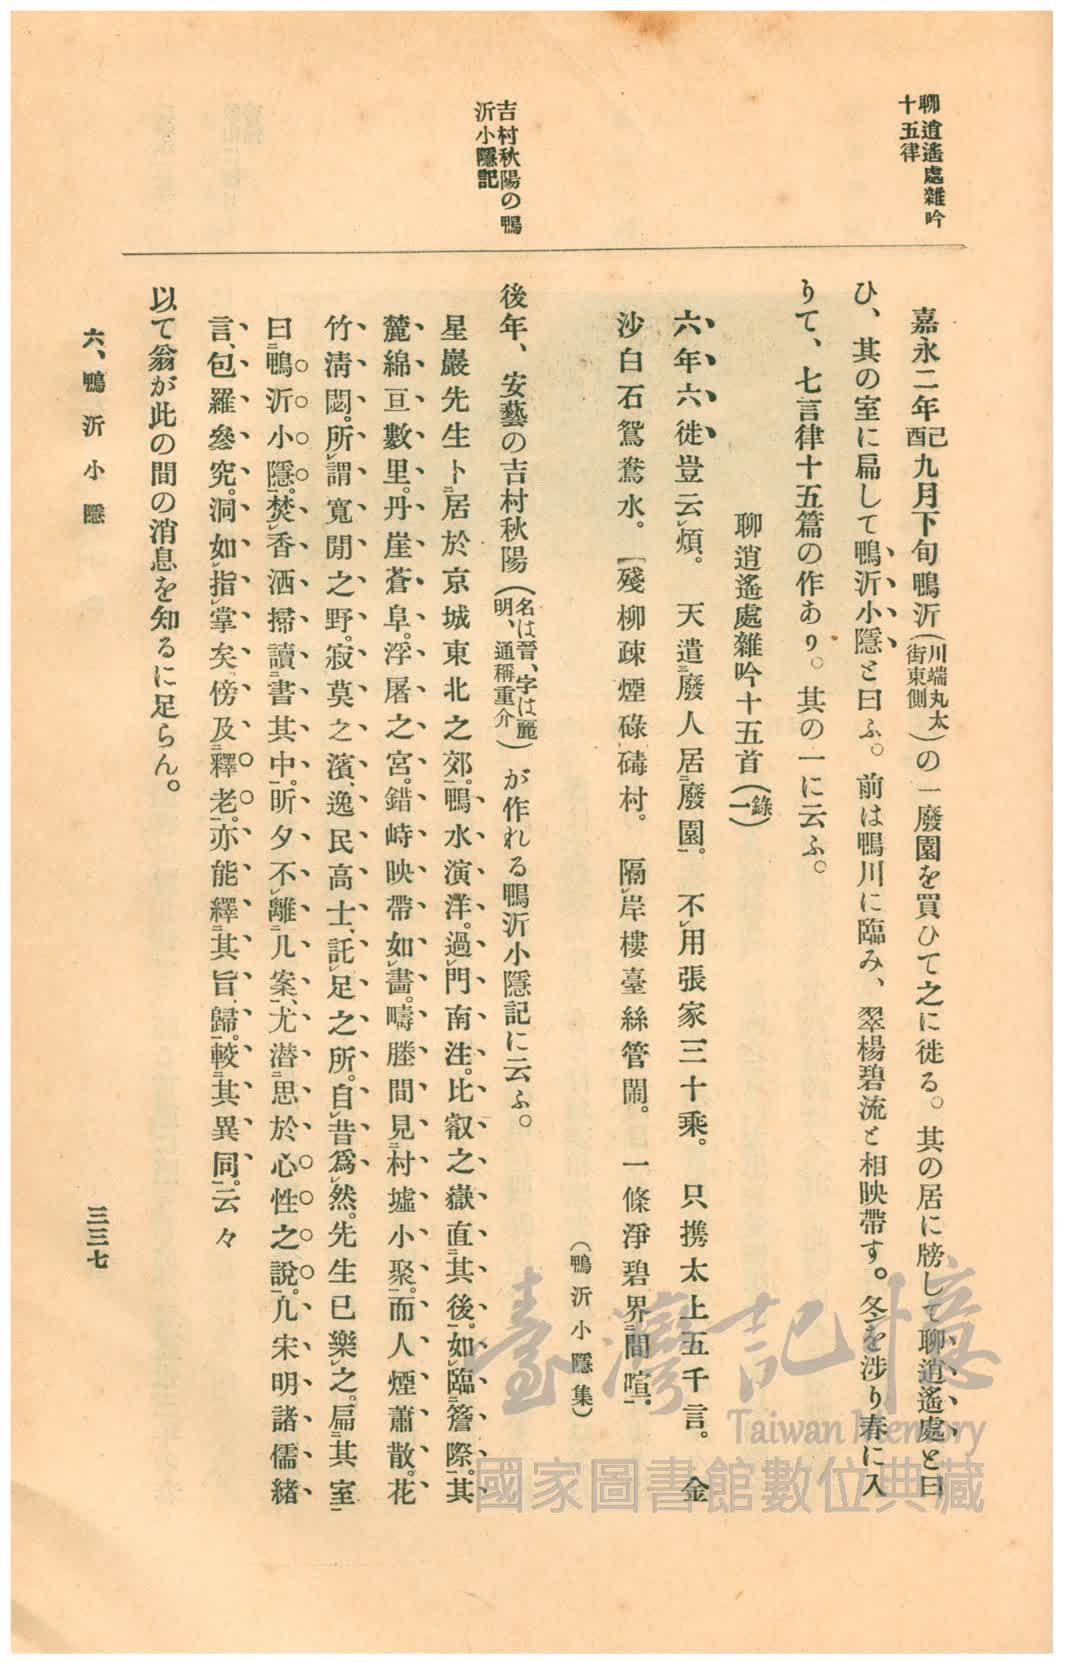 聊逍遙處雜吟
十五律
吉村秋陽の鴨
沂小隱記
嘉永二年己酉九月下旬鴨沂(川端丸太街東側)の一廢園を買ひて之に徙る。其の居に牓して聊逍遙處と曰
ひ、其の室に扁して鴨沂小隱と曰ふ。前は鴨川に臨み、翠楊碧流と相映帶す。冬を涉り春に入
りて、七言律十五篇の作あり。其の一に云ふ。
聊逍遙處雜吟十五首(錄一)
六年六徙豈云レ煩。天遣三廢人居二廢園一。不レ用張家三十乘。只携太上五千言。金
沙白石鴛鴦水。殘柳疎煙碌碡村。隔レ岸樓臺絲管鬧。一條淨碧界二間喧一。
(鴨沂小隱集)
後年、安藝の吉村秋陽(名は晉、字は麗明、通稱重介)が作れる鴨沂小隱記に云ふ。
星巖先生卜二居於京城東北之郊一。鴨水演洋。過レ門南注。比叡之嶽直二其後一。如レ臨二簷際一。其
麓綿亘數里。丹崖蒼阜。浮屠之宮。錯峙映帶如レ畵。疇塍間見二村墟小聚一。而人煙蕭散。花
竹淸閟。所レ謂寬閒之野。寂莫之濱、逸民高士、託レ足之所。自レ昔爲レ然。先生已樂レ之。扁二其室一
曰二鴨沂小隱一。焚レ香洒掃讀二書其中一。昕夕不レ離二几案一、尤潜二思於心性之說一。凡宋明諸儒緖
言、包羅參究。洞如レ指レ掌矣。傍及二釋老一。亦能繹二其旨歸一。較二其異同一。云々
以て翁が此の間の消息を知るに足らん。
六、鴨沂小隱
三三七
臺灣記憶
Taiwan Memory
國家圖書館數位典藏